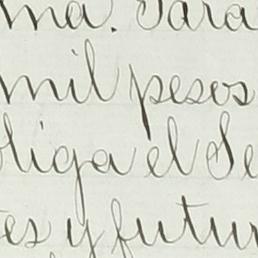 ma. Para
mil pesos
liga el Se
es y futur